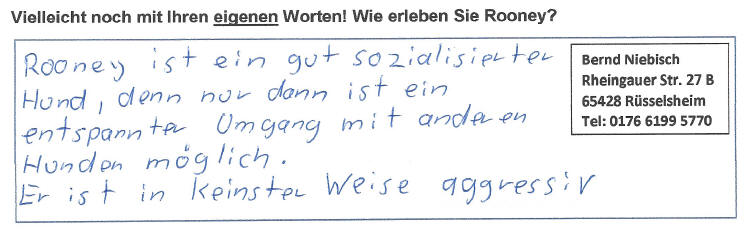 Vielleicht noch mit Ihren eigenen Worten! Wie erleben Sie Rooney?
Rooney ist ein gut sozialisierter
Hund, denn nur dann ist ein
entspannter Umgang mit anderen
Hunden möglich.
Er ist in keinster Weise aggressiv
Bernd Niebisch
Rheingauer Str. 27 B
65428 Rüsselsheim
Tel: 0176 6199 5770